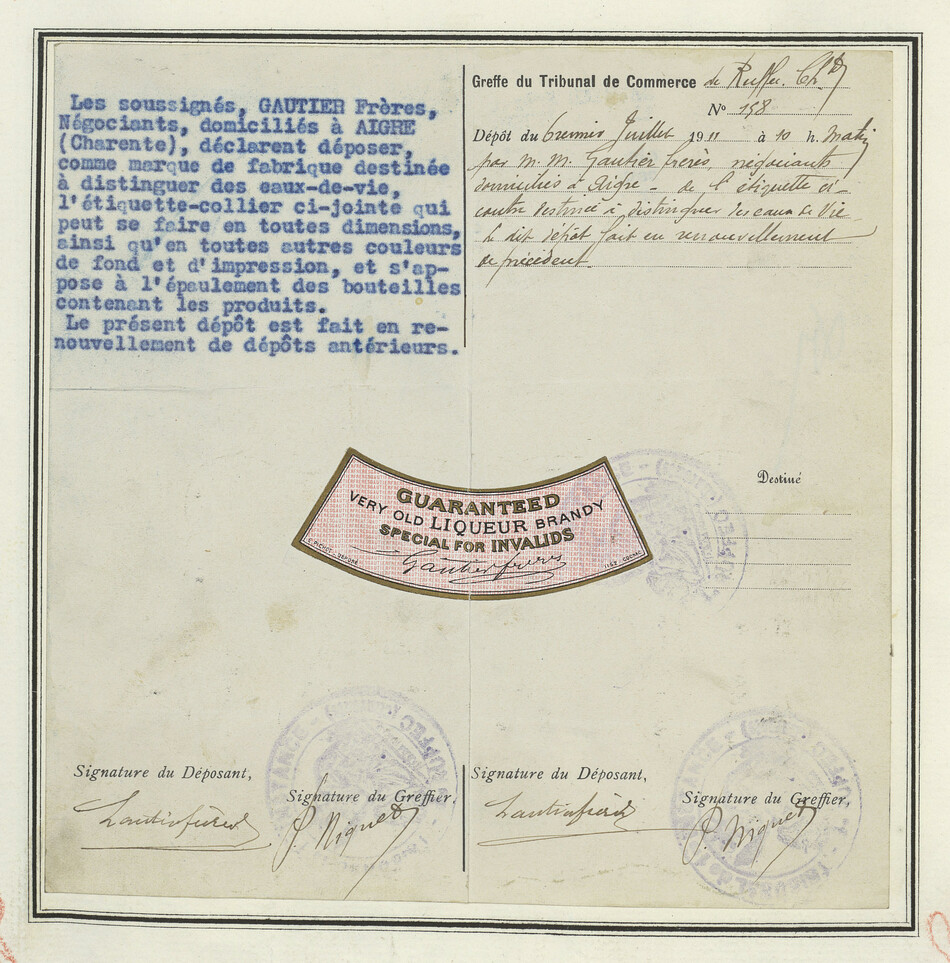 Les soussignés, GAUTIER Frères,
Négociants, domiciliés à AIGRE
(Charente), déclarent déposer,
comme marque de fabrique destinée
à distinguer des eaux-de-vie,
l'étiquette-collier ci-jointe qui
peut se faire en toutes dimensions,
ainsi qu'en toutes autres couleurs
de fond et d'impression, et s'ap-
pose à l'épaulement des bouteilles
contenant les produits.
Le présent dépôt est fait en re-
nouvellement de dépôts antérieurs.
Greffe du Tribunal de Commerce de Ruffec
Nº 198
Dépôt du premier Juillet 1911 à 10 h. Matin
par M.M. Gautier frères, négociants
domiciliés à Aigre - de l'étiquette ci-
contre destinée à distinguer des eaux de Vie
Le dit dépôt fait en renouvellement
de précédent.
Destiné
GUARANTEED
VERY OLD LIQUEUR BRANDY
SPECIAL FOR INVALIDS
Gautier frères
Signature du Déposant,
Signature du Greffier,
Gautier frères
P. Niquet
Signature du Déposant,
Signature du Greffier,
Gautier frères
P. Niquet